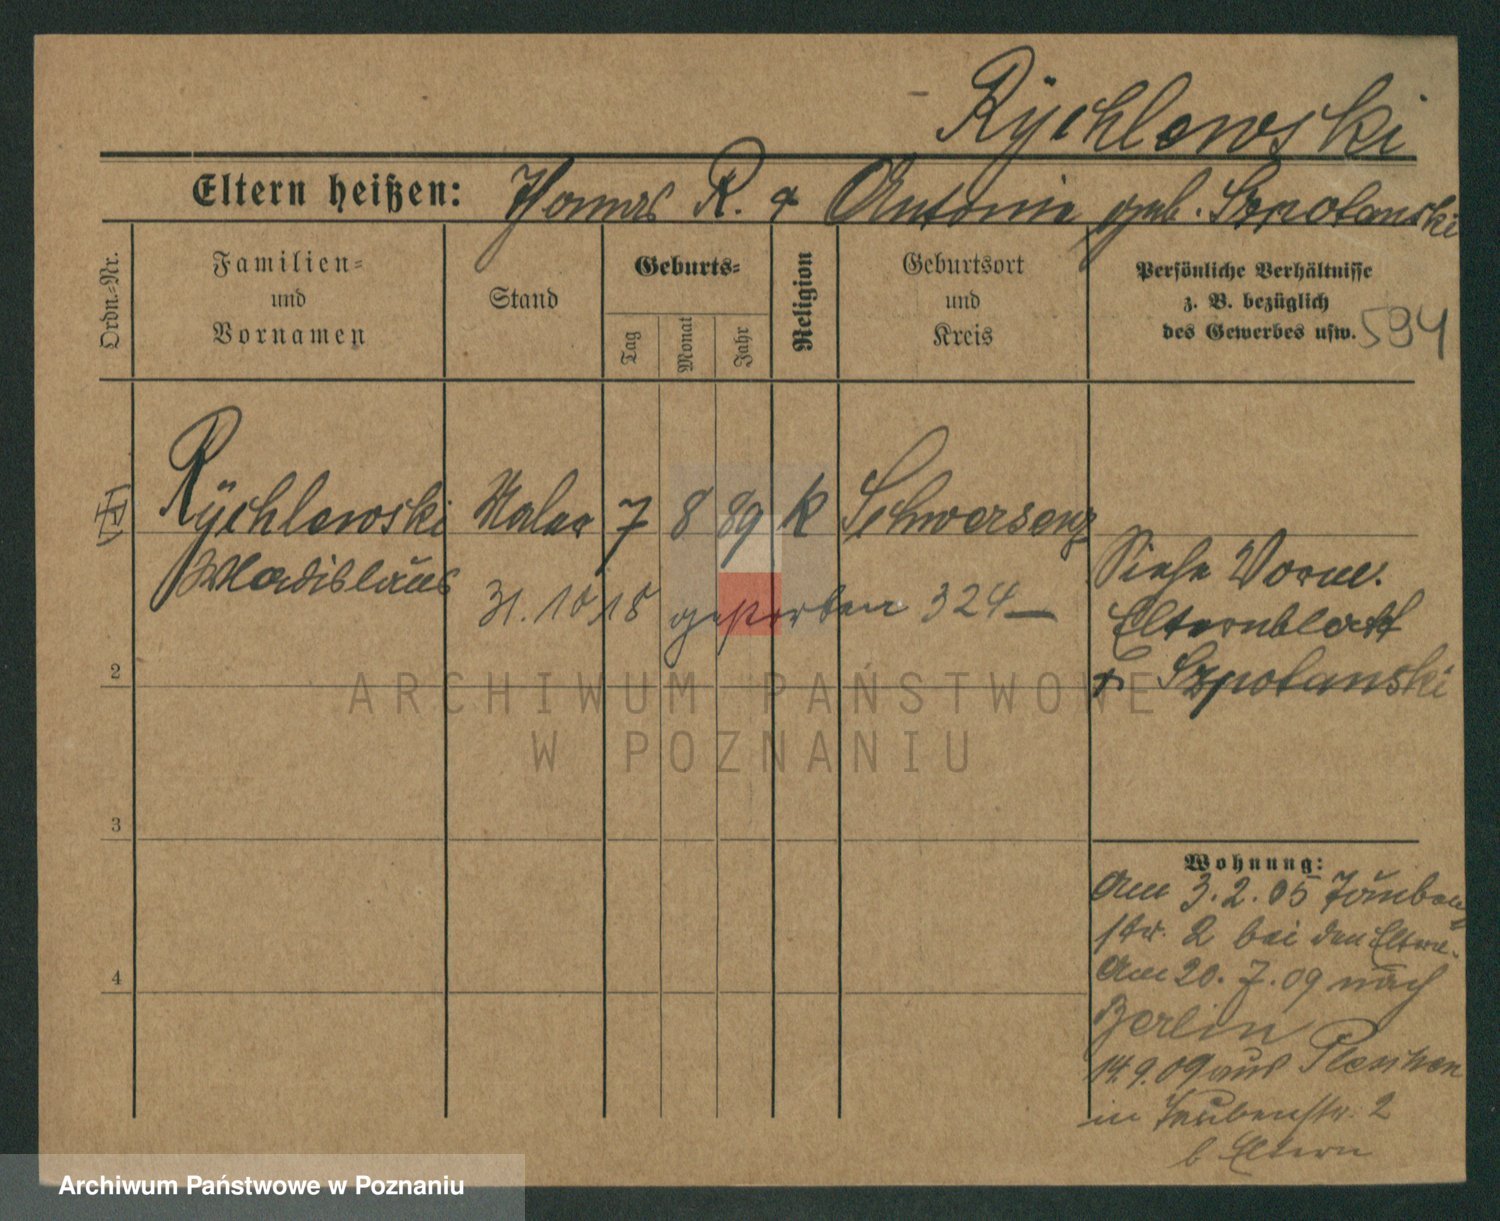 Rÿchlewski
Eltern heißen: Thomas R. & Antonie geb. Szpotanski
Ordn.-Nr.
Familien-
und
Vornamen
Stand
Geburts-
Tag
Monat
Jahr
Religion
Geburtsort
und
Kreis
Persönliche Verhältnisse
z. B. bezüglich
des Gewerbes usw.
594
Rÿchlewski Maler 7 8 89 k Schwersenz
Wladislaus
31. 10 18 gestorben 324
Siehe Vorm.
Elternblatt
Szpotanski
2
3
4
Wohnung:
Am 3.2.05 Tauben-
str. 2 bei den Eltern.
Am 20.7.09 nach
Berlin
14.9.09 aus Pleschen
in Taubenstr. 2
b Eltern
ARCHIWUM PAŃSTWOWE
W POZNANIU
Archiwum Państwowe w Poznaniu